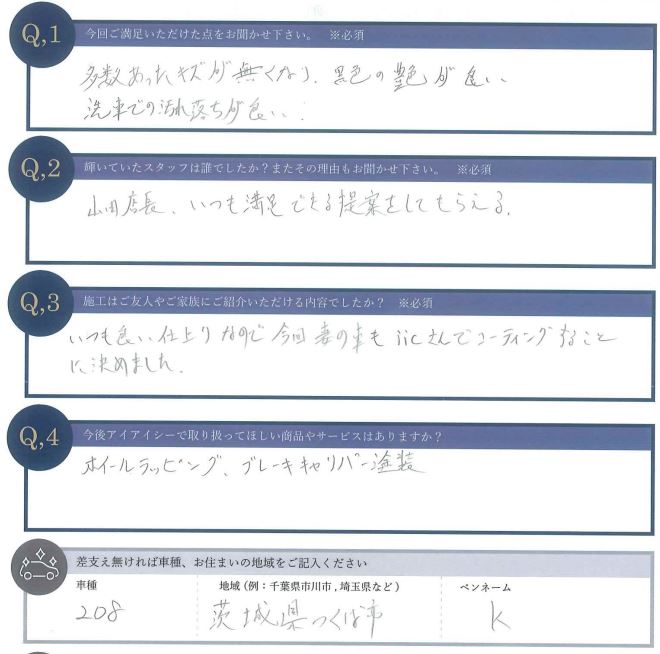 Q,1 今回ご満足いただけた点をお聞かせ下さい。 ※必須
多数あったキズが無くなり、黒色の艶が良い、
洗車での汚れ落ちが良い、
Q,2 輝いていたスタッフは誰でしたか?またその理由もお聞かせ下さい。 ※必須
山田店長、いつも満足できる提案をしてもらえる。
Q,3 施工はご友人やご家族にご紹介いただける内容でしたか? ※必須
いつも良い仕上りなので今回妻の車もiicさんでコーティングすること
に決めました。
Q,4 今後アイアイシーで取り扱ってほしい商品やサービスはありますか?
ホイールラッピング、ブレーキキャリパー塗装
差支え無ければ車種、お住まいの地域をご記入ください
車種 地域(例:千葉県市川市,埼玉県など) ペンネーム
208 茨城県つくば市 K